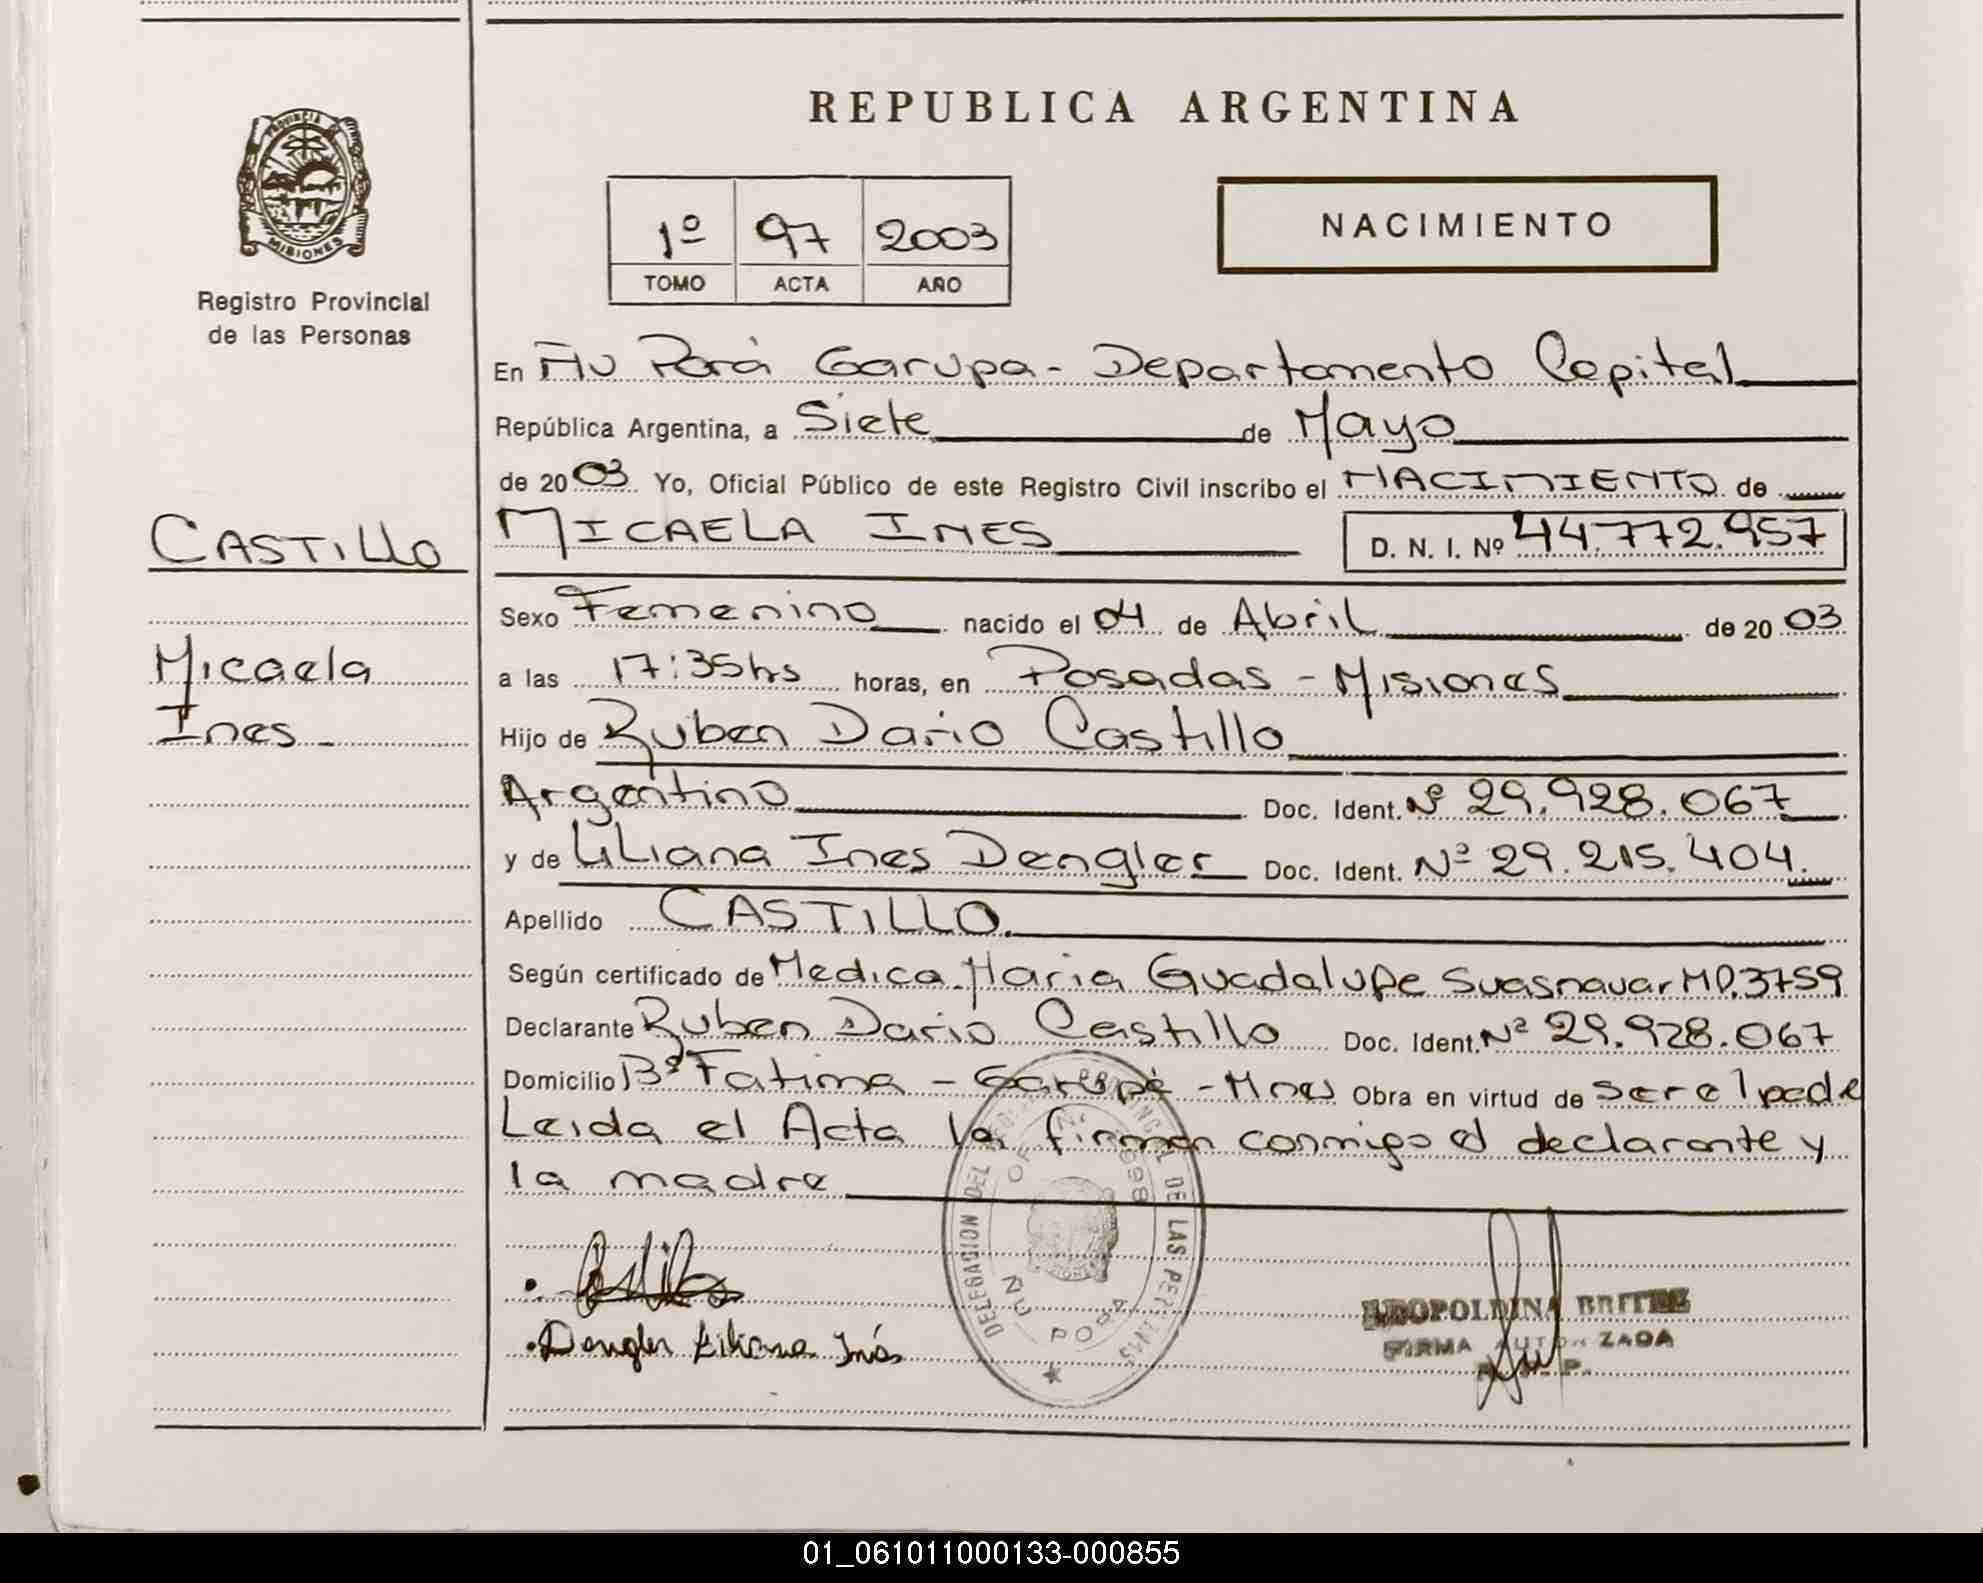 REPUBLICA ARGENTINA
PROVINCIA DE
MISIONES
Registro Provincial
de las Personas
1º 97 2003
TOMO ACTA AÑO
NACIMIENTO
En Ñu Porá Garupa - Departamento Capital
República Argentina, a Siete de Mayo
de 2003 Yo, Oficial Público de este Registro Civil inscribo el NACIMIENTO de
CASTILLO
MICAELA INES D. N. I. Nº 44.772.957
Sexo Femenino nacido el 04 de Abril de 2003
Micaela
Ines
a las 17:35hs horas, en Posadas - Misiones
Hijo de Ruben Dario Castillo
Argentino Doc. Ident. Nº 29.928.067
y de Liliana Ines Dengler Doc. Ident. Nº 29.215.404.
Apellido CASTILLO.
Según certificado de Medica Maria Guadalupe Suasnavar MP.3759
Declarante Ruben Dario Castillo Doc. Ident. Nº 29.928.067
Domicilio Bº Fatima - Garupá - Mnes Obra en virtud de ser el pade
Leida el Acta la firman conmigo el declarante y
la madre
DELEGACION DEL REGISTRO PROVINCIAL DE LAS PERSONAS
ÑU PORA
Castillo
Dengler Liliana Inés
LEOPOLDINA BRITEZ
FIRMA AUTORIZADA
01_061011000133-000855